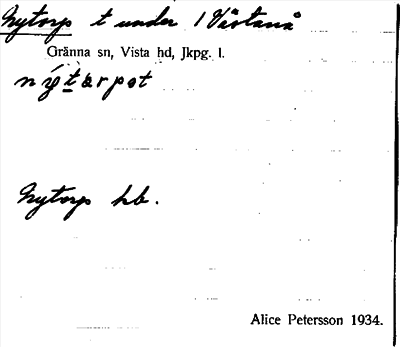 Nytorp t under 1 Västanå
Gränna sn, Vista hd, Jkpg. l.
nýtarpat
Nytorp hb.
Alice Petersson 1934.